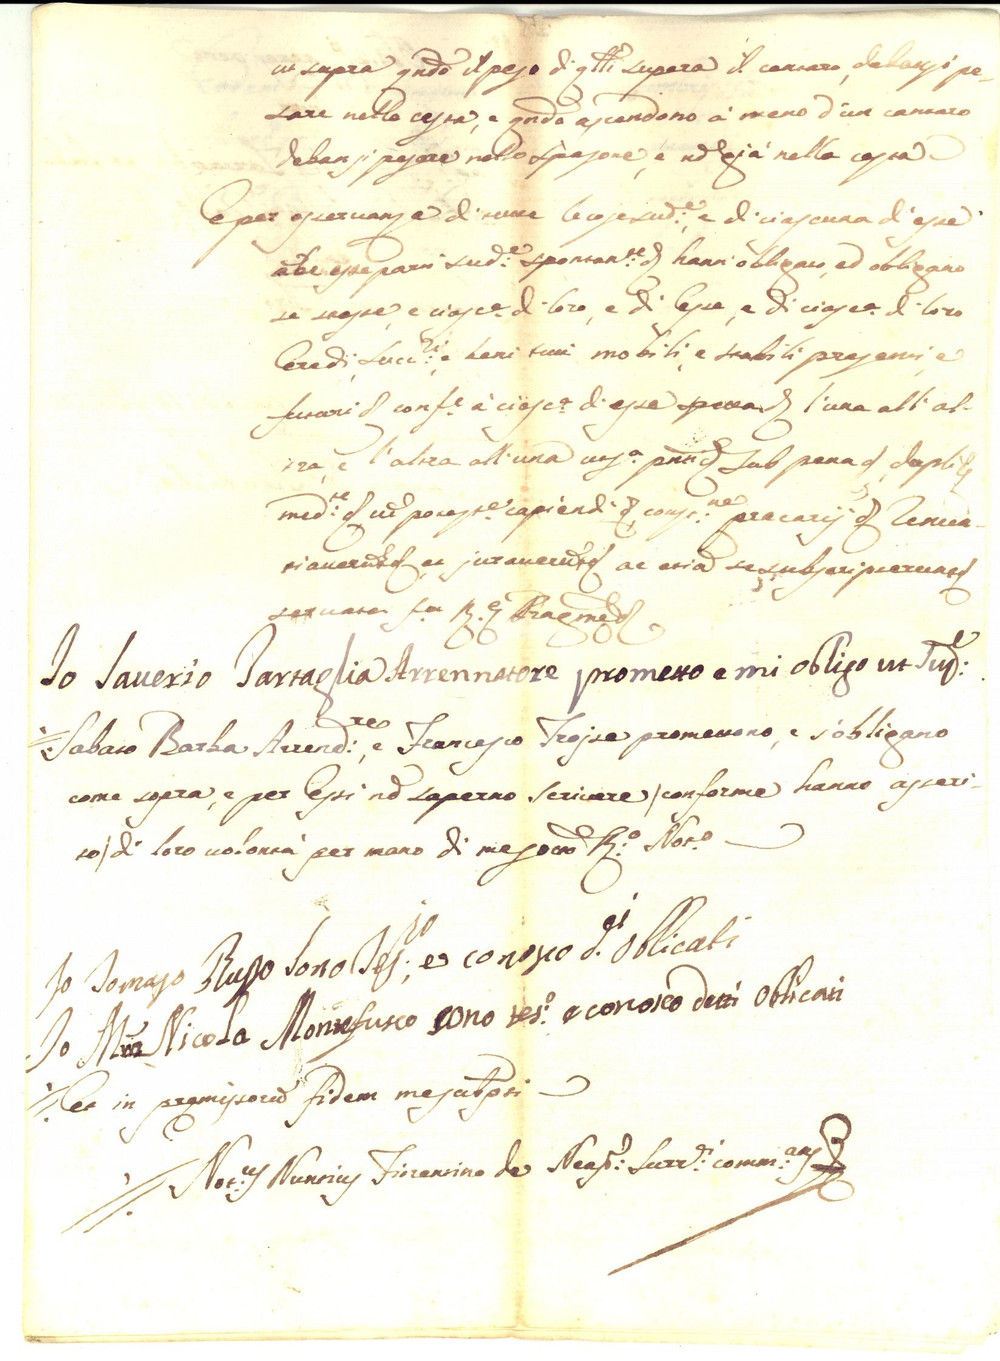 ut supra qndo il peso di qlli supera il cantaro, debansi pe-
sare nella cesta, e qndo ascendono à meno d'un cantaro
debansi pesare nello spasone, e nō già nella cesta
E per osservanza di tutte le cose sud.e, e di ciascuna di esse
esse parti sud.e spontan.te hanno obligato, ed obligano
se stesse, e ciasc.a di loro, e di esse, e di ciasc.a di loro
Eredi, succ.ri, e beni tutti mobili, e stabili presenti, e
futuri conf.e à ciasc.a di esse l'una all'al-
tra, e l'altra all'una sub pena dupli
med.te potes.te capiendi const.ne precarij renun-
tiaverunt et juraverunt ac etiā se subscripserunt
servata R.a Pragmca
Io Saverio Tartaglia Arrennatore prometto e mi obligo ut Sup.:
Sabato Barba Arrend.re, e Francesco Troise promettono, e s'obligano
come sopra, e per essi nō saperno scrivere/conforme hanno asseri-
to/di loro volontà per mano di me R.o Not.o
Io Tomaso Russo sono tes.io, e conosco d.ti obblicati
Io M.ro Nicola Montefusco sono tes.o e conosco detti oblicati
Et in premissorū fidem me subscpsi
Not.us Nuntius Fiorentino de Neap.: comm.